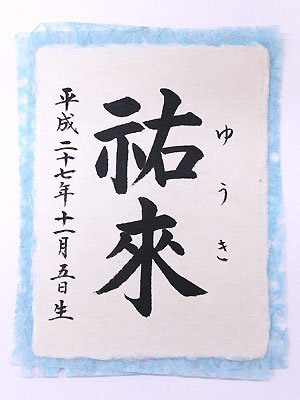 ゆうき
祐來
平成二十七年十一月五日生